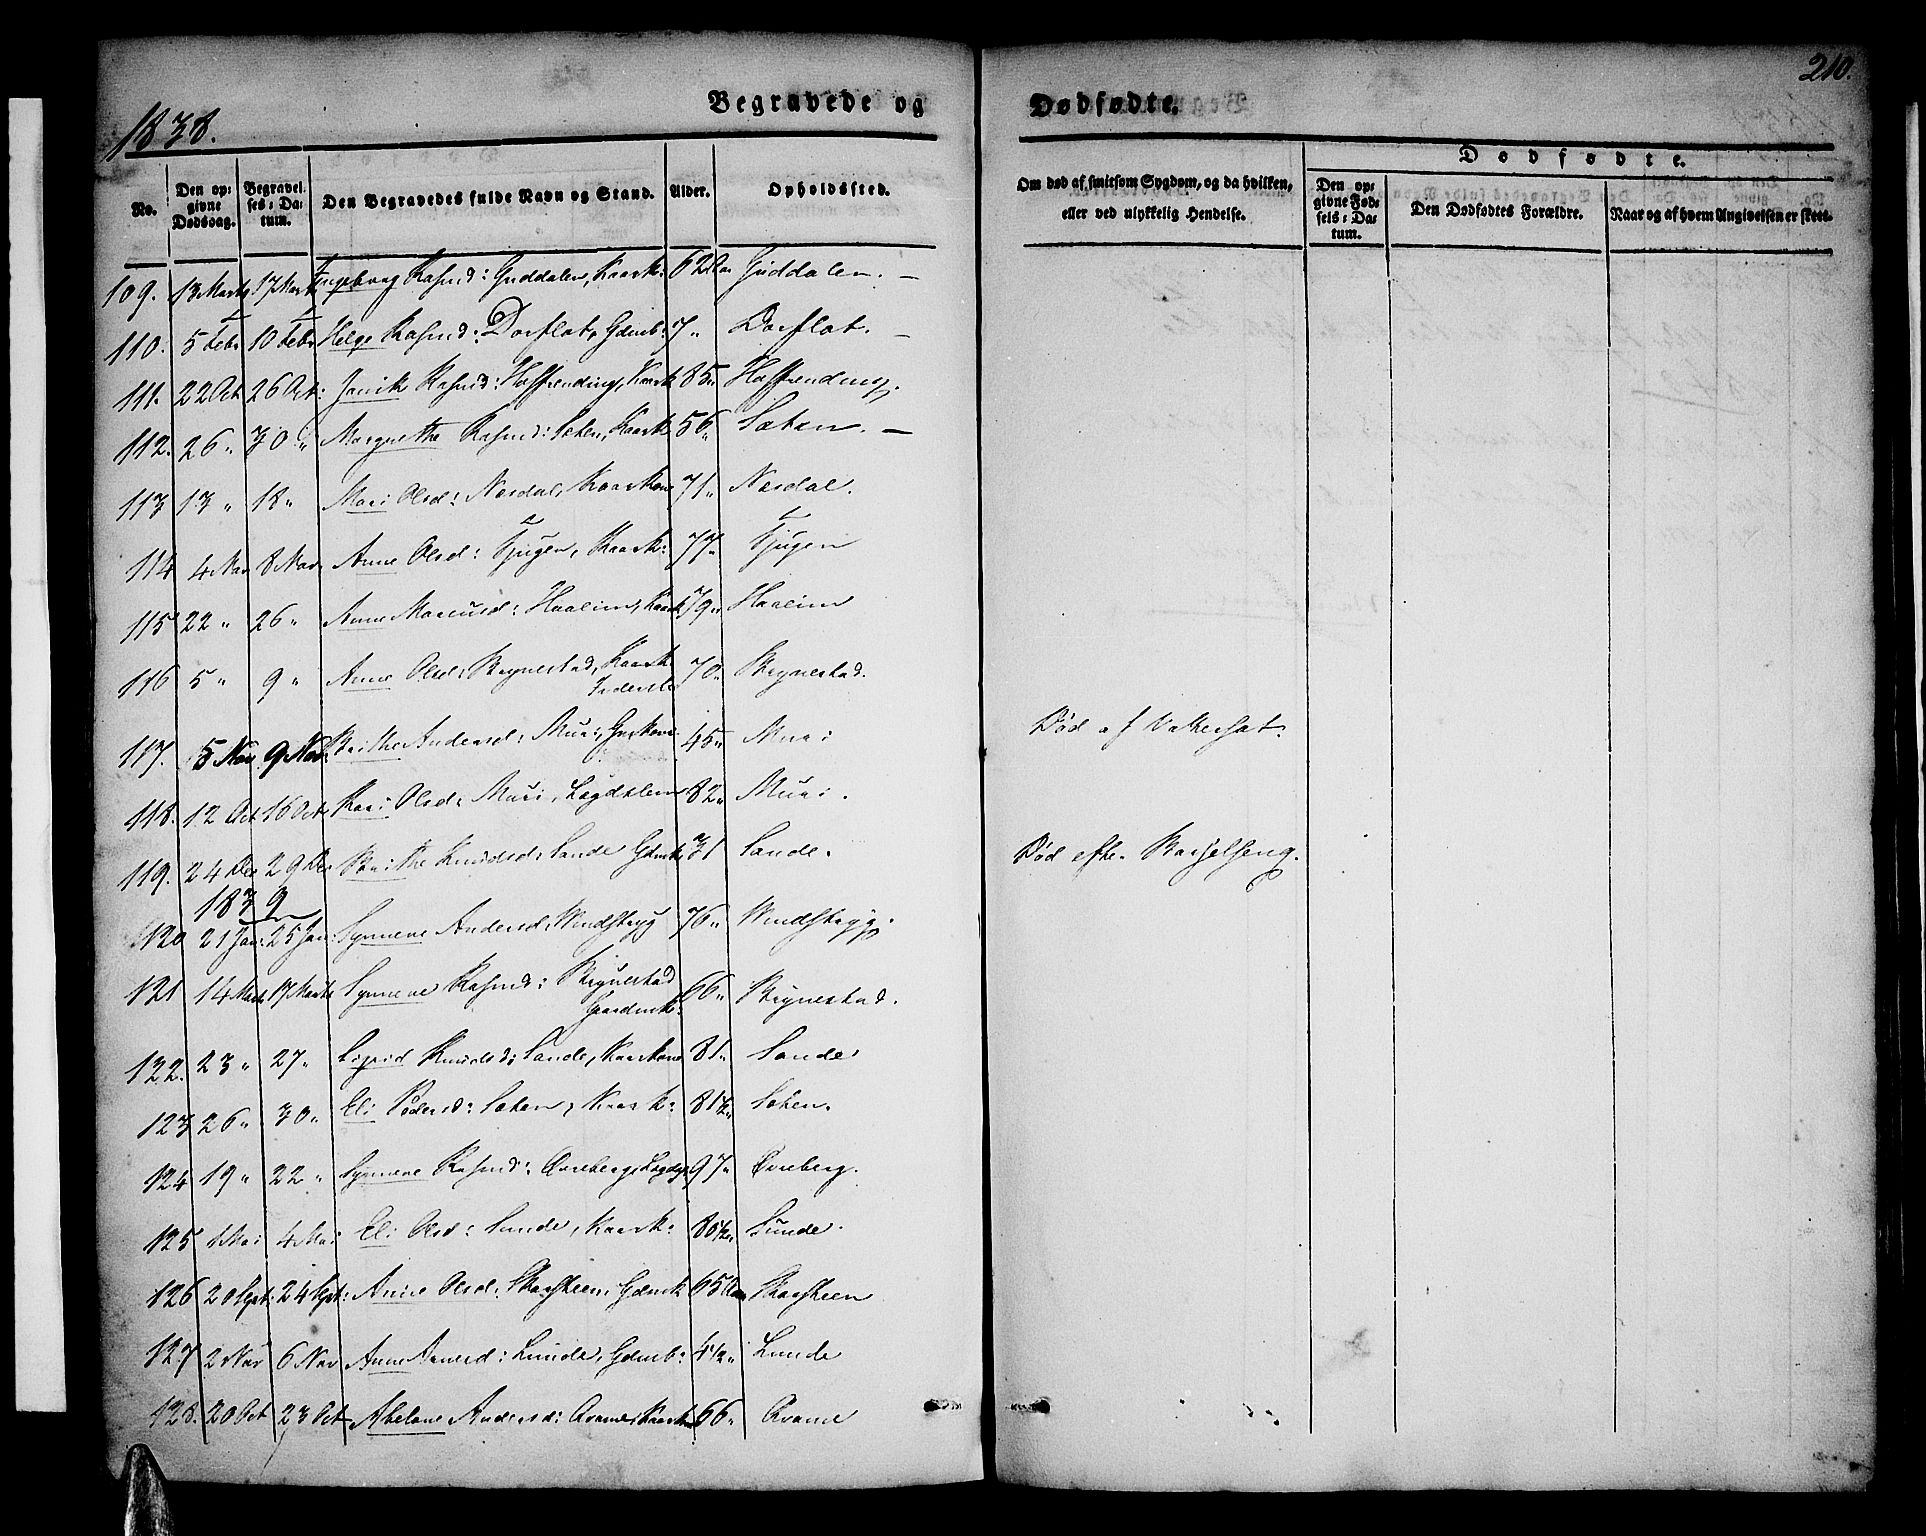 210.
1838.
Begravede og
Dødfødte.
No.
Den opgivne Dødsdag.
Begravelses-Datum.
Den Begravedes fulde Navn og Stand.
Alder.
Opholdssted.
Om død af smitsom Sygdom, og da hvilken, eller ved ulykkelig Hendelse.
Dødfødte.
Den opgivne Fødsels-Datum.
Den Dødfødtes Forældre.
Naar og af hvem Angivelsen er skeet.
109. 13 Marts 17 Marts Ingeborg Rasmd: Guddalen, Kaark: 62 Aar Guddalen. —
110. 5 Febr 10 Febr Helge Rasmd: Dorflat, Gdmb: 7 „ Dorflat. —
111. 22 Oct 26 Oct: Jannik Rasmd: Kaark 85 „
112. 26 „ 30 „ Margrethe Rasmd: Sæten, Kaark 56 „ Sæten. —
113 13 „ 18 „ Mari Olsd: Nesdal, Kaarkone 71 „ Nesdal.
114 4 Nov 8 Nov Anne Olsd: Tjugen, Kaark: 77 „ Tjugen
115 22 „ 26 „ Anne Haaheim, Kaark 79 „ Haaheim
116 5 „ 9 „ Anne Olsd: Brynestad, Kaark 70 „ Brynestad.
117. 5 Nov 9 Nov: Brithe Andersd: Muri, 45 „ Muri Død af Vattersot.
118. 12 Oct 16 Oct Kari Olsd: Muri, Lægdslem 82 „ Muri.
119. 24 Dec 29 Dec Brithe Knudsd: Sande Gdmk 31 Sande. Død efter Barselseng.
1839
120 21 Jan: 25 Jan: Synneve Andersd: 76 „
121 14 Marts 17 Marts Synneve Rasmd: Brynestad Gaardmk: 66 „ Brynestad.
122. 23 „ 27 „ Sigrid Knudsd: Sande, Kaarkone 81 „ Sande
123 26 „ 30 „ Eli Pedersd: Sæten, Kaark: 81½ „ Sæten.
124 19 „ 22 „ Synneve Rasmd: Øvreberg, 97 „ Øvreberg.
125 1 Mai 4 Mai Eli Olsd: Sunde, Kaark: 80½ „ Sunde.
126 20 Sept: 24 Sept: Anne Olsd: Skaasheen, Gdmk 65 Aar Skaasheen
127 2 Nov 6 Nov Anne Lunde, Gdmb: 4½ „ Lunde
128. 20 Oct 23 Oct Abelone Andersd: Qvame, Kaark 66 „ Qvame